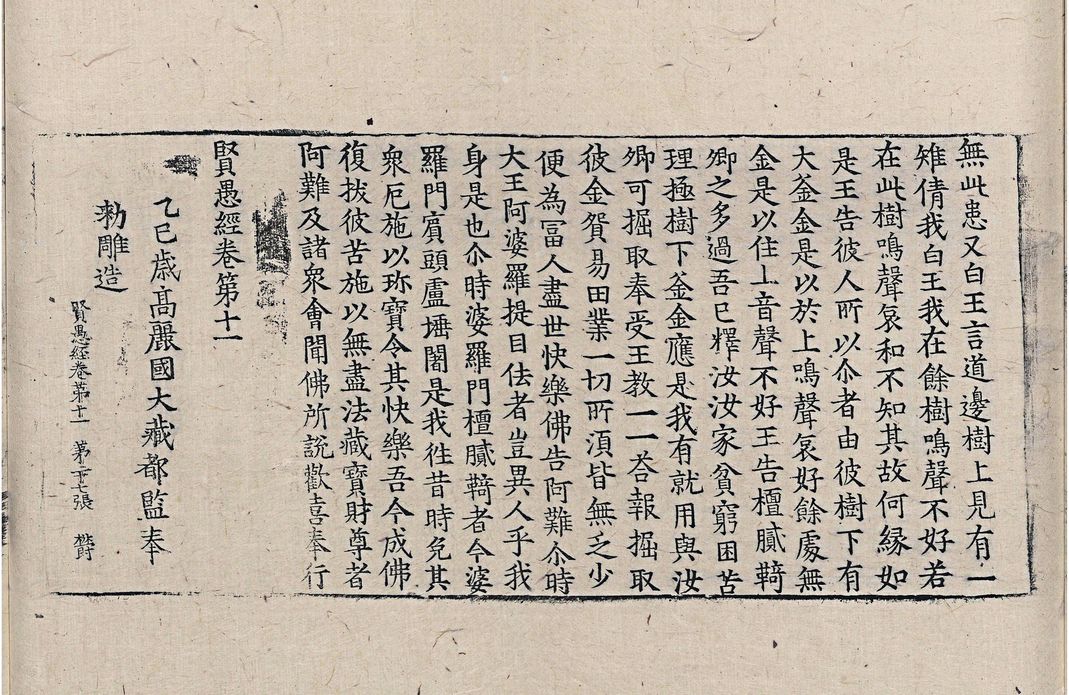 無此患又白王言道邊樹上見有一
雉倩我白王我在餘樹鳴聲不好若
在此樹鳴聲哀和不知其故何緣如
是王告彼人所以尒者由彼樹下有
大釜金是以於上鳴聲哀好餘處無
金是以住上音聲不好王告檀膩䩭
卿之多過吾已釋汝汝家貧窮困苦
理極樹下釜金應是我有就用與汝
卿可掘取奉受王教一一荅報掘取
彼金貿易田業一切所湏皆無乏少
便為冨人盡世快樂佛告阿難尒時
大王阿婆羅提目佉者豈異人乎我
身是也尒時婆羅門檀膩䩭者今婆
羅門賔頭盧埵闍是我徃昔時免其
衆厄施以珎寶令其快樂吾今成佛
復拔彼苦施以無盡法藏寶財尊者
阿難及諸衆會聞佛所說歡喜奉行
賢愚經卷第十一
乙巳歲高麗國大藏都監奉
勅雕造
賢愚経卷第十一 第二十七張 欝